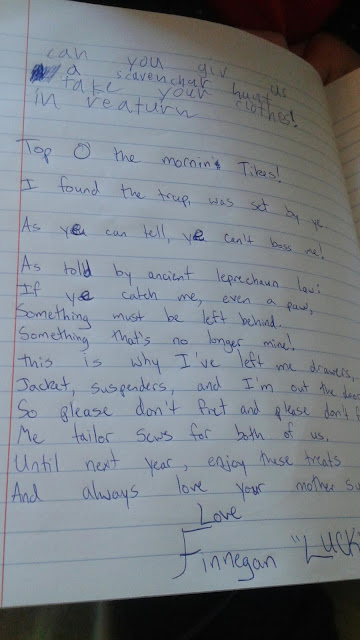 can you giv us
a scavenchar hunt
take your clothes!
in reaturn
Top O the mornin's Tikes!
I found the trap, was set by ye
As ye can tell, ye can't boss me!
As told by ancient leprechaun law:
If ye catch me, even a paw,
Something must be left behind.
Something that's no longer mine!
This is why I've left me drawers,
Jacket, suspenders, and I'm out the door
So please don't fret and please don't
Me tailor sews for both of us.
Until next year, enjoy these treats
And always love your mother
Love
Finnegan "LUCK"